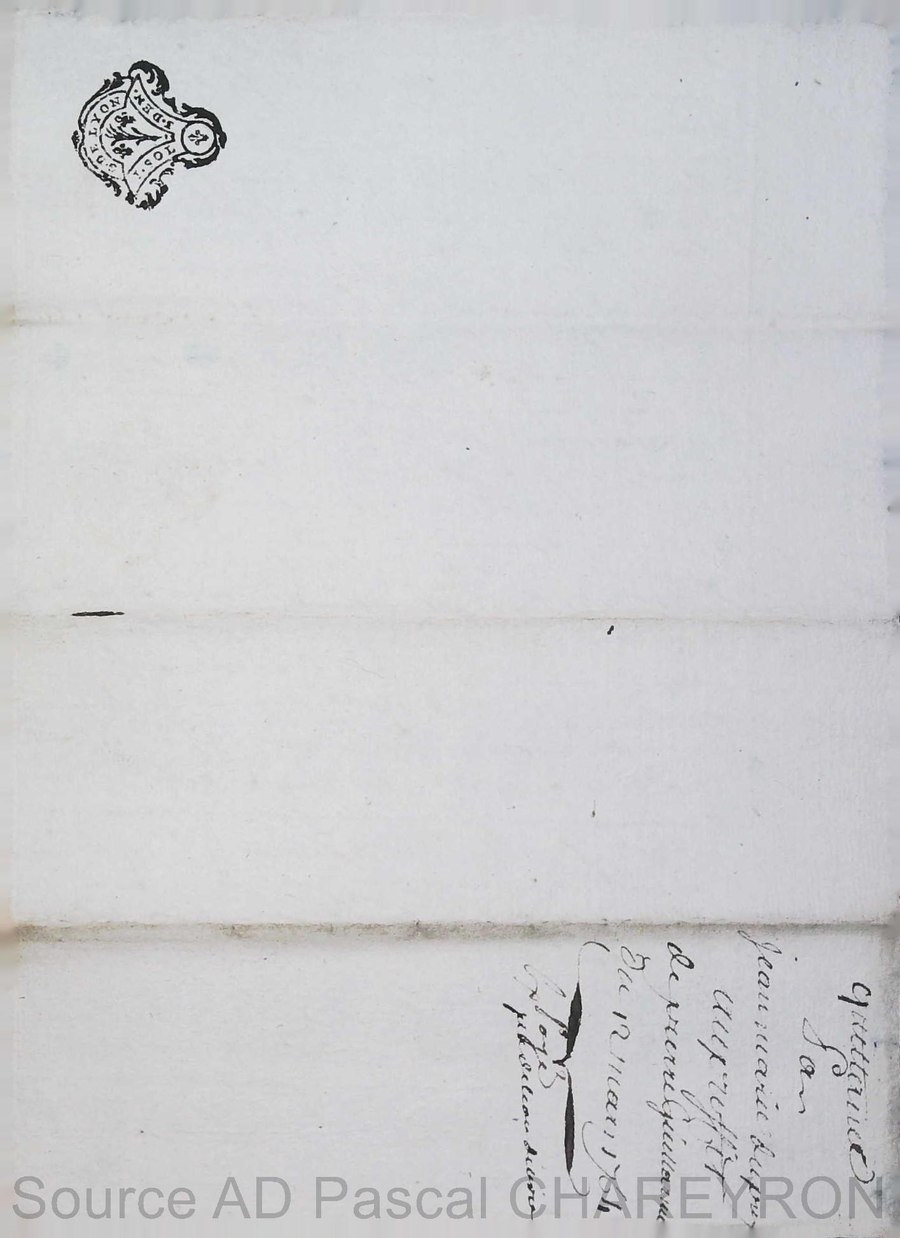 G. DE LYON
1. SOL. 1. DEN.
quittance
Par
Jean marie dupui
au proffit
de pierre Guillaume
Du 12 mars 1764
Source AD Pascal CHAREYRON